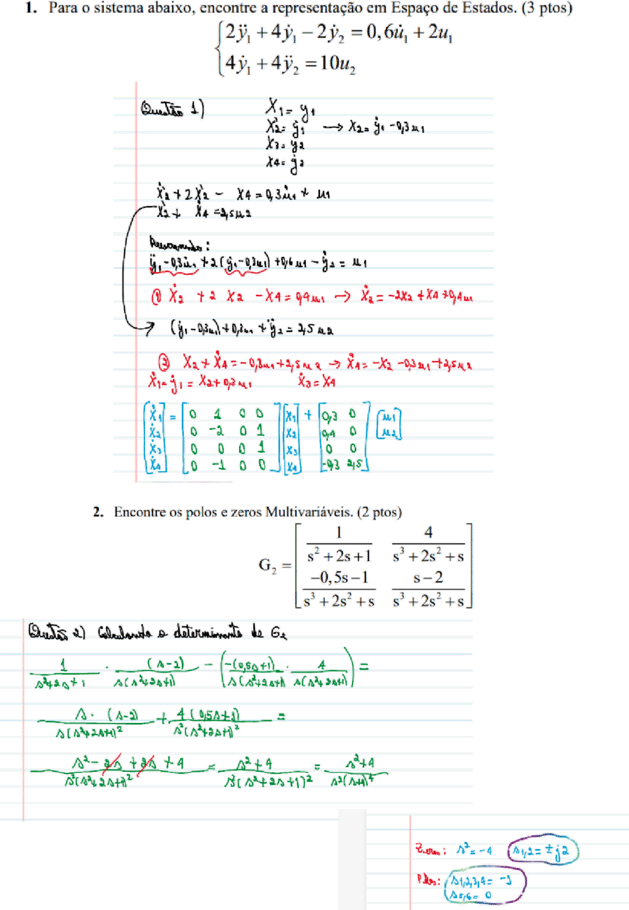 1. Para o sistema abaixo, encontre a representação em Espaço de Estados. (3 ptos)
2ÿ₁ + 4ẏ₁ − 2ẏ₂ = 0,6u̇₁ + 2u₁
4ẏ₁ + 4ÿ₂ = 10u₂
Questão 1)
X₁ = y₁
X₂ = ẏ₁ → X₂ = ẏ₁ - 0,3u₁
X₃ = y₂
X₄ = ẏ₂
ẋ₂ + 2x₂ - X₄ = 0,3u̇₁ + u₁
X₂ + ẋ₄ = 2,5u₂
ÿ₁ - 0,3u̇₁ + 2(ẏ₁ - 0,3u₁) + 0,6u₁ - ẏ₂ = u₁
① Ẋ₂ + 2X₂ - X₄ = 0,4u₁ → Ẋ₂ = -2X₂ + X₄ + 0,4u₁
(ẏ₁ - 0,3u₁) + 0,3u₁ + ÿ₂ = 2,5u₂
② X₂ + Ẋ₄ = -0,3u₁ + 2,5u₂ → Ẋ₄ = -X₂ - 0,3u₁ + 2,5u₂
Ẋ₁ = ẏ₁ = X₂ + 0,3u₁ Ẋ₃ = X₄
[ẋ₁] = [0 1 0 0] [x₁] + [0,3 0] [u₁]
[ẋ₂] [0 -2 0 1] [x₂] [0,4 0] [u₂]
[ẋ₃] [0 0 0 1] [x₃] [0 0]
[ẋ₄] [0 -1 0 0] [x₄] [-0,3 2,5]
2. Encontre os polos e zeros Multivariáveis. (2 ptos)
1/(s² + 2s + 1) 4/(s³ + 2s² + s)
G₂ =
(−0,5s − 1)/(s³ + 2s² + s) (s − 2)/(s³ + 2s² + s)
Questão 2) Calculando o determinante de G₂
1/(s²+2s+1) · (s-2)/(s(s²+2s+1)) - (-(0,5s+1)/(s(s²+2s+1)) · 4/(s(s²+2s+1))) =
s·(s-2)/(s(s²+2s+1)²) + 4(0,5s+1)/(s²(s²+2s+1)²) =
(s² - 2s + 2s + 4)/(s²(s²+2s+1)²) = (s²+4)/(s²(s²+2s+1)²) = (s²+4)/(s²(s+1)⁴)
Zeros: s² = -4 s1,2 = ±j2
Polos: s1,2,3,4 = -1
s5,6 = 0